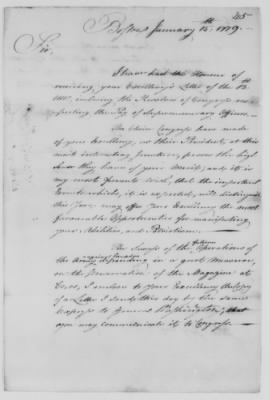 45
Boston January 12th 1779.
Sir,
I have had the Honour of
receiving your Excellency's Letter of the 12th
Ulto. inclosing the Resolves of Congress re-
specting the Pay of Supernumerary Officers.
The Choice Congress have made
of your Excellency, as their President, at this
most interesting Juncture, proves the high
Idea they have of your Merit; and it is
my most fervent wish, that the important
Events which, it is expected, will distinguish
this Year, may offer your Excellency the most
favourable Opportunities for manifesting
your Abilities, and Patriotism.
The Success of the future Operations of
the Army depending in a great Measure,
on the Preservation of the Magazine at
I enclose to your Excellency the Copy
of a Letter I send this day by the same
Express to General Washington, that
you may communicate it to Congress.